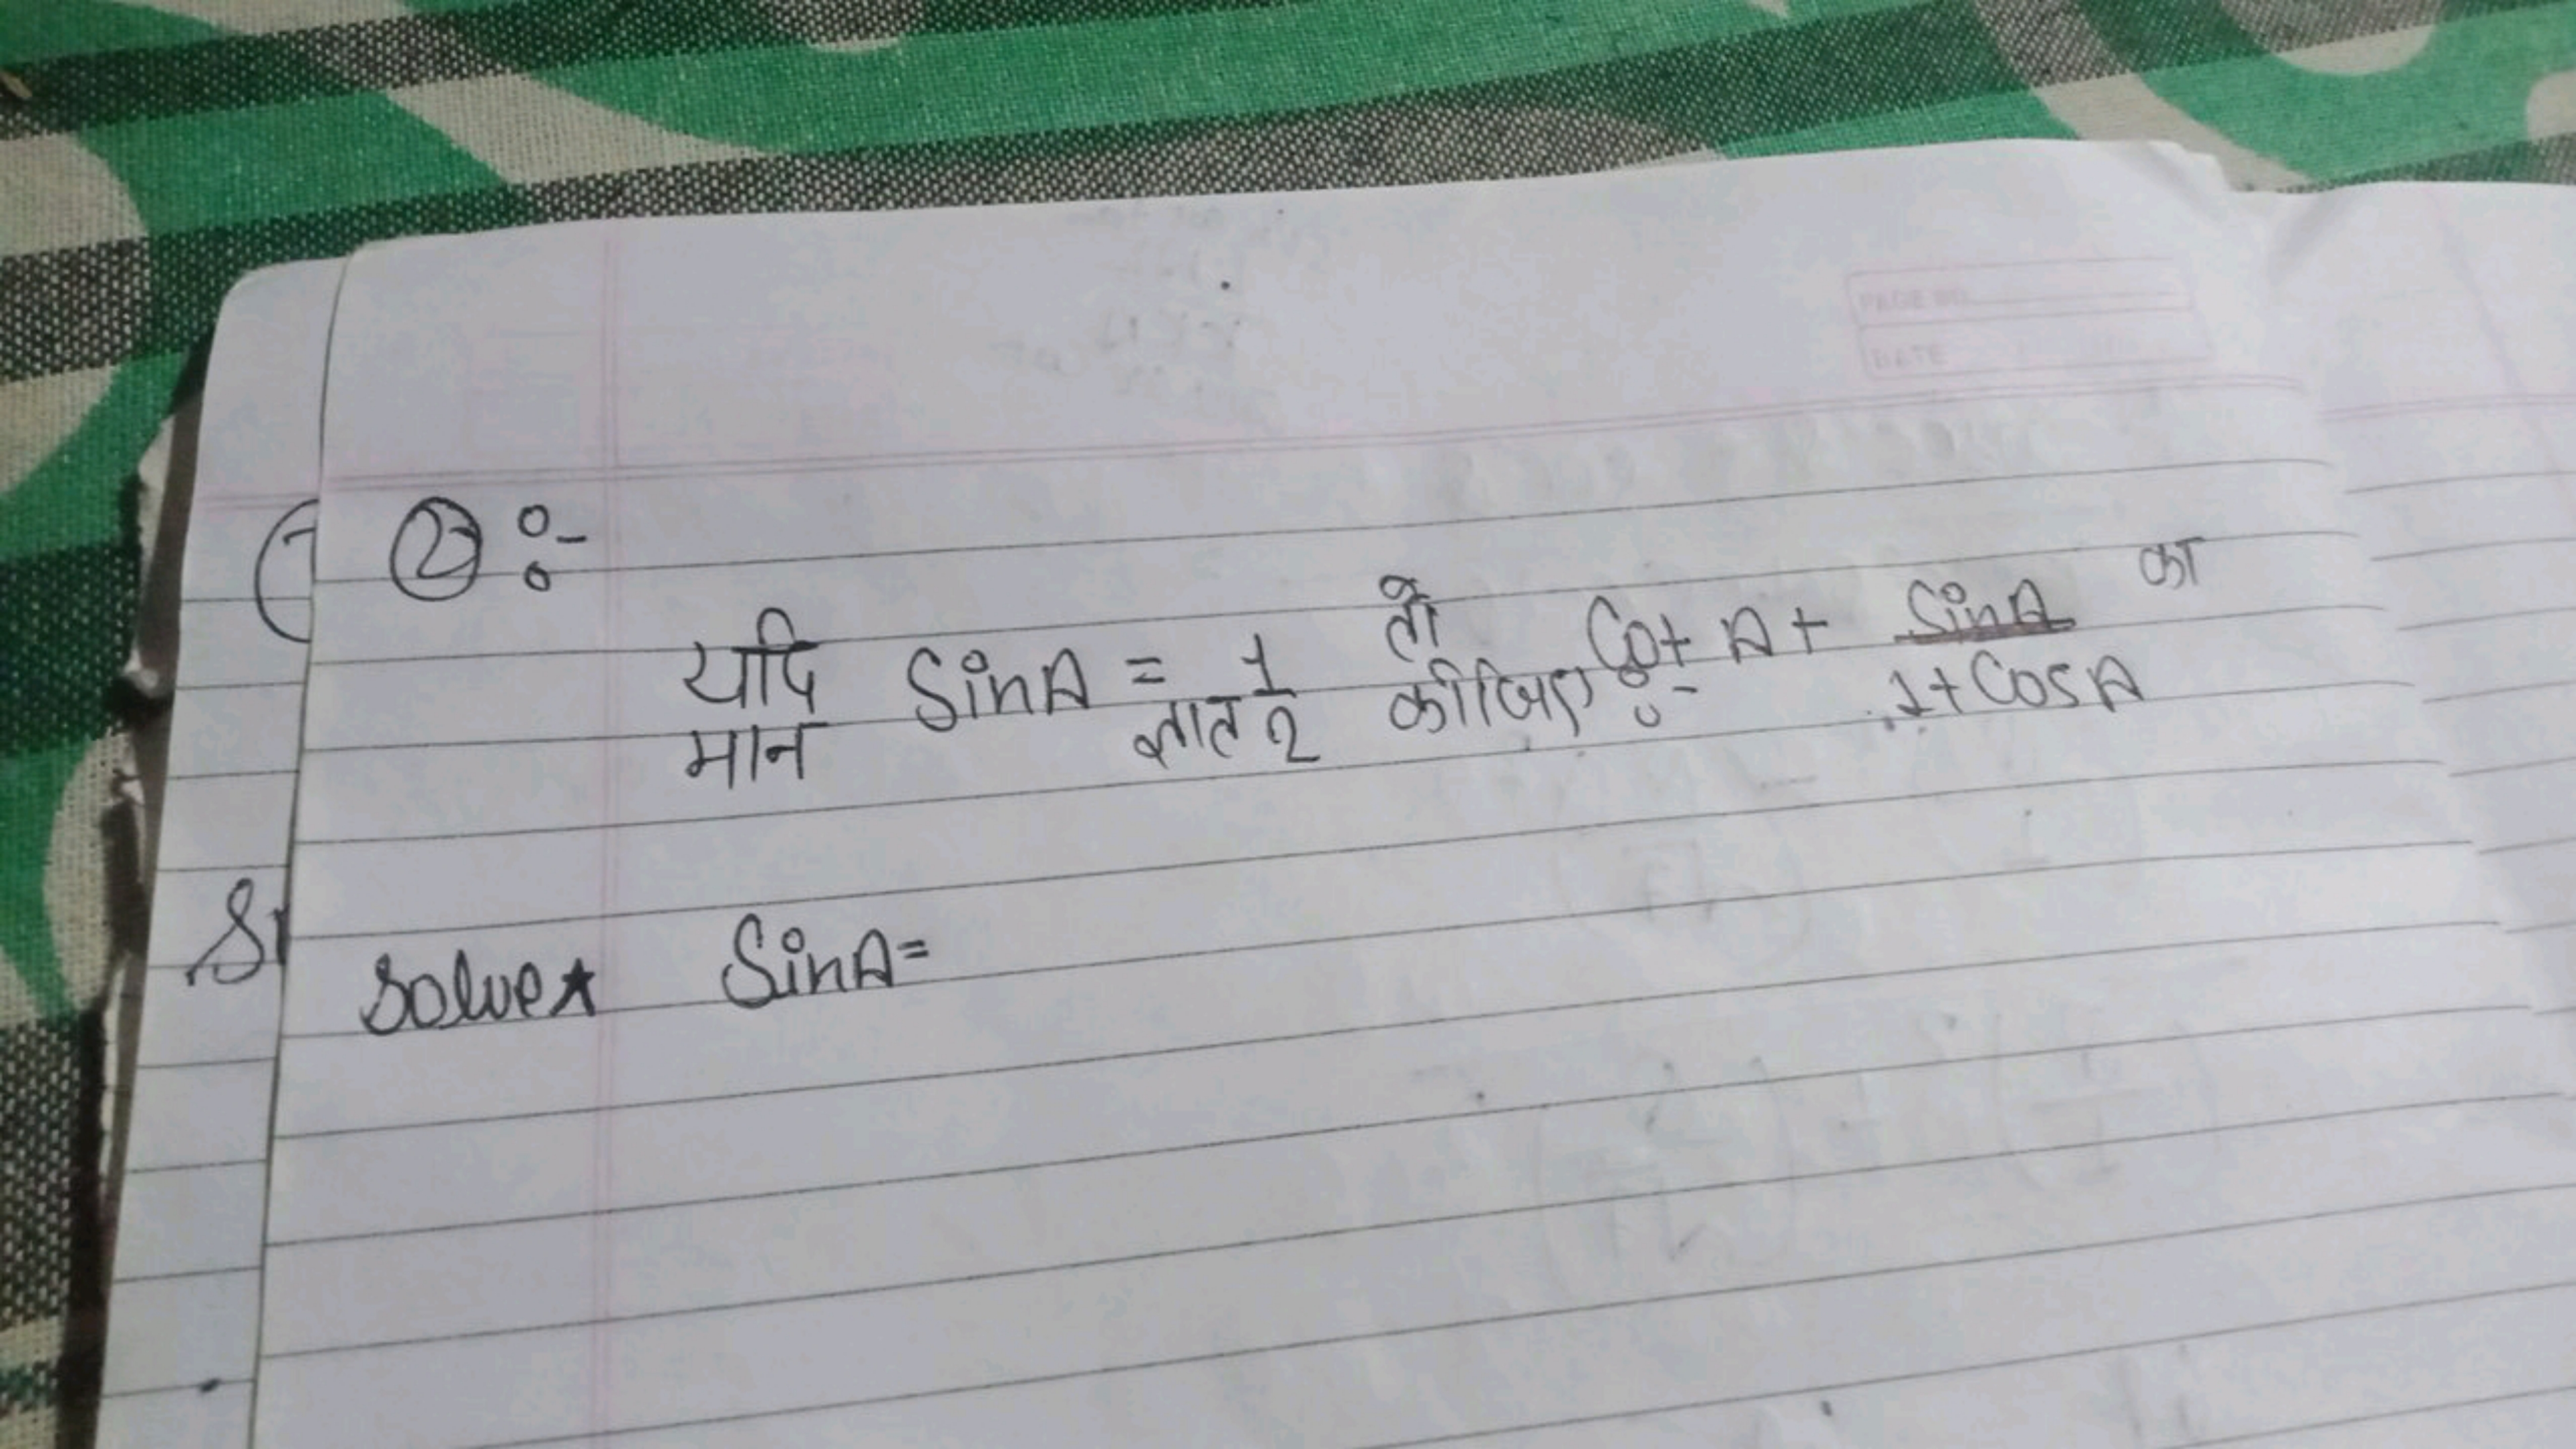 PAGE NO.
DATE
② :-
यदि SinA = 1/2 तो Cot A + SinA/1+CosA का
मान ज्ञात कीजिए :-
Solve★ SinA=